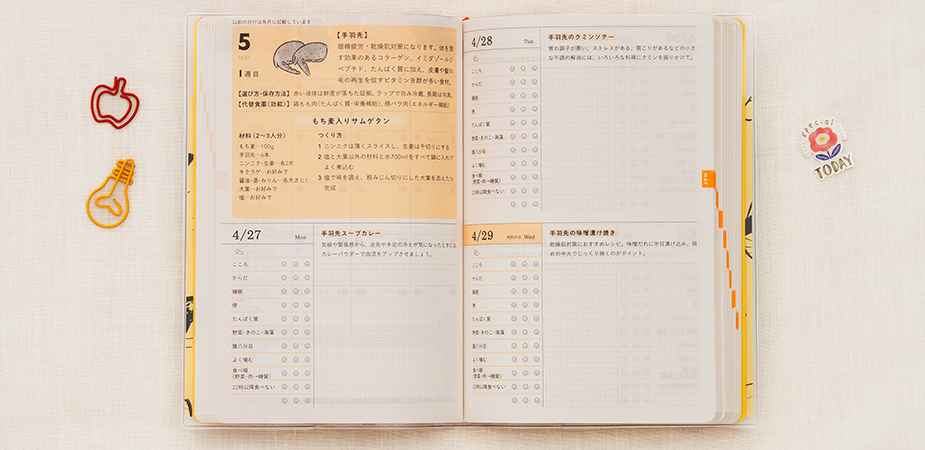 以前の日付は先月に記載しています
5
MAY
1週目
【手羽先】
眼精疲労・乾燥肌対策になります。体を潤
す効果のあるコラーゲン、イミダゾールジ
ペプチド、たんぱく質に加え、皮膚や髪の
毛の再生を促すビタミンB群が多い食材。
【選び方・保存方法】赤い液体は鮮度が落ちた証拠。ラップで包み冷蔵、長期は冷凍。
【代替食薬(効能)】鶏もも肉(たんぱく質・栄養補給)、豚バラ肉(エネルギー補給)
もち麦入りサムゲタン
材料(2〜3人分)
もち麦…100g
手羽先…6本
ニンニク・生姜…各2片
キクラゲ…お好みで
醤油・酒・みりん…各大さじ1
大葉…お好みで
塩…お好みで
つくり方
1 ニンニクは薄くスライスし、生姜は千切りにする
2 塩と大葉以外の材料と水700mlをすべて鍋に入れて
よく煮込む
3 塩で味を調え、粗みじん切りにした大葉を添えたら
完成
4/27 Mon
手羽先スープカレー
気候や緊張感から、足先や手足の冷えが気になったときには
カレーパウダーで血流をアップさせましょう。
こころ
からだ
睡眠
便
たんぱく質
野菜・きのこ・海藻
腹八分目
よく噛む
食べ順
(野菜→肉→糖質)
22時以降食べない
4/28 Tue
手羽先のクミンソテー
胃の調子が悪い、ストレスがある、肩こりがあるなどの小さ
な不調の解消には、いろいろな料理にクミンを振りかけて。
こころ
からだ
睡眠
便
たんぱく質
野菜・きのこ・海藻
腹八分目
よく噛む
食べ順
(野菜→肉→糖質)
22時以降食べない
4/29 昭和の日 Wed
手羽先の味噌漬け焼き
乾燥肌対策におすすめレシピ。味噌だれに半日漬け込み、弱
めの中火でじっくり焼くのがポイント。
こころ
からだ
睡眠
便
たんぱく質
野菜・きのこ・海藻
腹八分目
よく噛む
食べ順
(野菜→肉→糖質)
22時以降食べない
MAY
special
TODAY